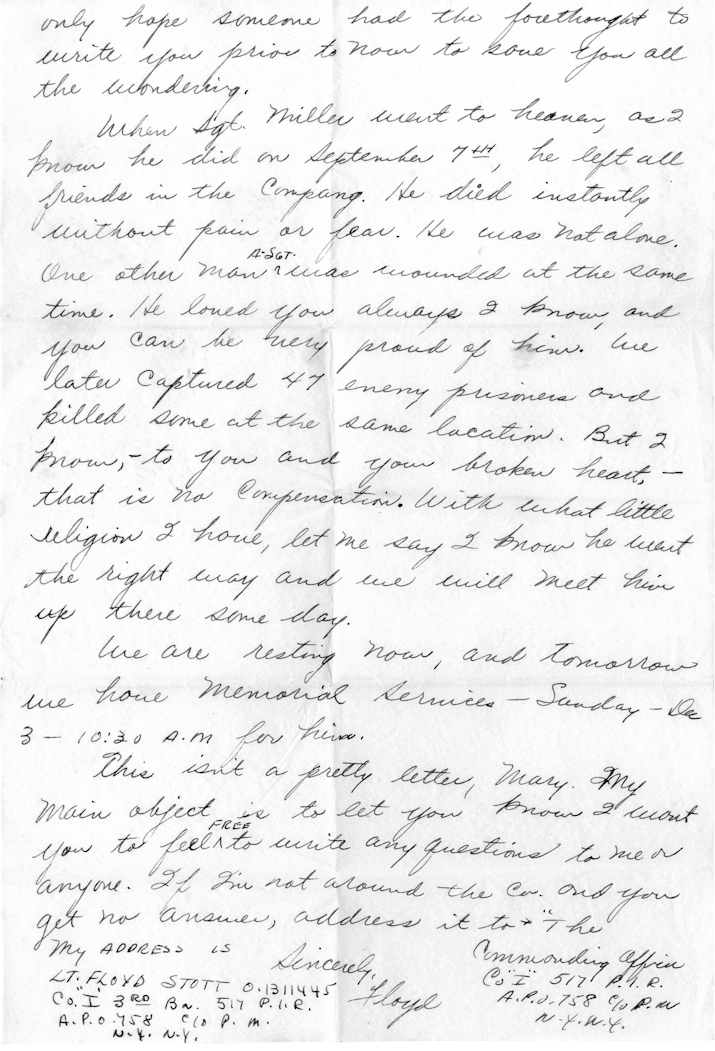 only hope someone had the forethought to
write you prior to now to save you all
the wondering.
When Sgt. Miller went to heaven, as I
know he did on September 7TH, he left all
friends in the Company. He died instantly
without pain or fear. He was not alone.
One other man A-SGT. was wounded at the same
time. He loved you always I know, and
you can be very proud of him. We
later captured 47 enemy prisoners and
killed some at the same location. But I
know,- to you and your broken heart, -
that is no compensation. With what little
religion I have, let me say I know he went
the right way and we will meet him
up there some day.
We are resting now, and tomorrow
we have Memorial Services - Sunday - Dec
3 - 10:30 A.M for him.
This isn't a pretty letter, Mary. My
main object is to let you know I want
you to feel FREE to write any questions to me or
anyone. If I'm not around the Co. and you
get no answer, address it to - "The
Commanding Officer
Co "I" 517 P.I.R.
A.P.O. 758 c/o P.M
N.Y. N.Y.
Sincerely,
Floyd
My ADDRESS IS
LT. FLOYD STOTT O.1311445
Co. "I" 3RD Bn. 517 P.I.R.
A.P.O. 758 c/o P.M.
N.Y. N.Y.